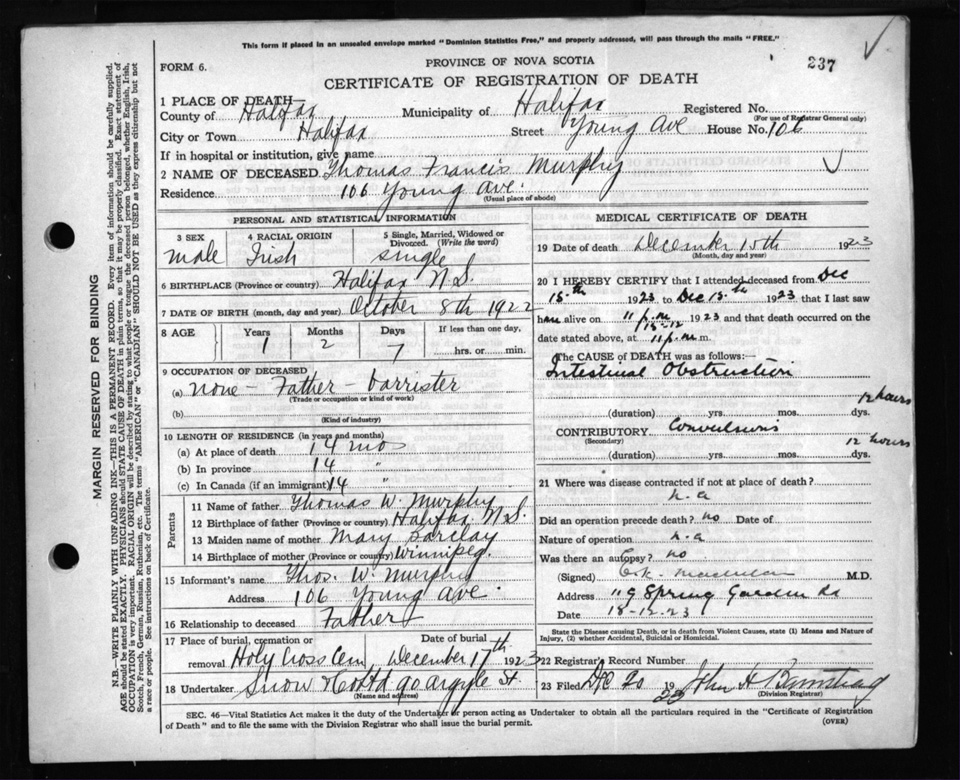 This form if placed in an unsealed envelope marked "Dominion Statistics Free," and properly addressed, will pass through the mails "FREE."
237
FORM 6.
PROVINCE OF NOVA SCOTIA
CERTIFICATE OF REGISTRATION OF DEATH
1 PLACE OF DEATH—
County of Halifax Municipality of Halifax Registered No.
(For use of Registrar General only)
City or Town Halifax Street Young Ave House No. 106
If in hospital or institution, give name
2 NAME OF DECEASED Thomas Francis Murphy
Residence 106 Young Ave.
(Usual place of abode)
PERSONAL AND STATISTICAL INFORMATION
3 SEX male
4 RACIAL ORIGIN Irish
5 Single, Married, Widowed or Divorced. (Write the word) single
6 BIRTHPLACE (Province or country) Halifax N.S.
7 DATE OF BIRTH (month, day and year) October 8th 1922
8 AGE Years 1 Months 2 Days 7 If less than one day, hrs. or min.
9 OCCUPATION OF DECEASED
(a) none - Father - barrister
(Trade or occupation or kind of work)
(b)
(Kind of industry)
10 LENGTH OF RESIDENCE (in years and months)
(a) At place of death 14 mos
(b) In province 14 "
(c) In Canada (if an immigrant) 14 "
Parents
11 Name of father Thomas W. Murphy
12 Birthplace of father (Province or country) Halifax N.S.
13 Maiden name of mother Mary Barclay
14 Birthplace of mother (Province or country) Winnipeg.
15 Informant's name Thos. W. Murphy
Address 106 Young Ave.
16 Relationship to deceased Father
17 Place of burial, cremation or removal Holy Cross Cem, Date of burial December 17th 1923
18 Undertaker Snow & Co Ltd 90 Argyle St.
(Name and address)
MEDICAL CERTIFICATE OF DEATH
19 Date of death December 15th 1923
(Month, day and year)
20 I HEREBY CERTIFY that I attended deceased from Dec
15th 1923 to Dec 15th 1923 that I last saw
him alive on 11 p.m 15-12 1923 and that death occurred on the
date stated above, at 11 p.m m.
The CAUSE OF DEATH was as follows:—
Intestinal Obstruction
12 hours
(duration) yrs. mos. dys.
CONTRIBUTORY Convulsions
(Secondary) 12 hours
(duration) yrs. mos. dys.
21 Where was disease contracted if not at place of death?
n.a
Did an operation precede death? no Date of
Nature of operation n.a
Was there an autopsy? no
(Signed) M.D.
Address 119 Spring Garden Rd
Date 18-12-23
State the Disease causing Death, or in death from Violent Causes, state (1) Means and Nature of Injury, (2) whether Accidental, Suicidal or Homicidal.
22 Registrar's Record Number
23 Filed Dec 20 1923 John H
(Division Registrar)
SEC. 46—Vital Statistics Act makes it the duty of the Undertaker or person acting as Undertaker to obtain all the particulars required in the "Certificate of Registration
of Death" and to file the same with the Division Registrar who shall issue the burial permit.
(OVER)
MARGIN RESERVED FOR BINDING
N.B.—WRITE PLAINLY WITH UNFADING INK—THIS IS A PERMANENT RECORD. Every item of information should be carefully supplied.
AGE should be stated EXACTLY. PHYSICIANS should STATE CAUSE OF DEATH in plain terms, so that it may be properly classified. Exact statement of
OCCUPATION is very important. RACIAL ORIGIN will be described by stating to what people or tongue the deceased person belonged, whether English, Irish,
Scotch, French, German, Russian, Ruthenian, etc. The terms "AMERICAN" or "CANADIAN" SHOULD NOT BE USED as they express citizenship but not
a race or people. See instructions on back of Certificate.